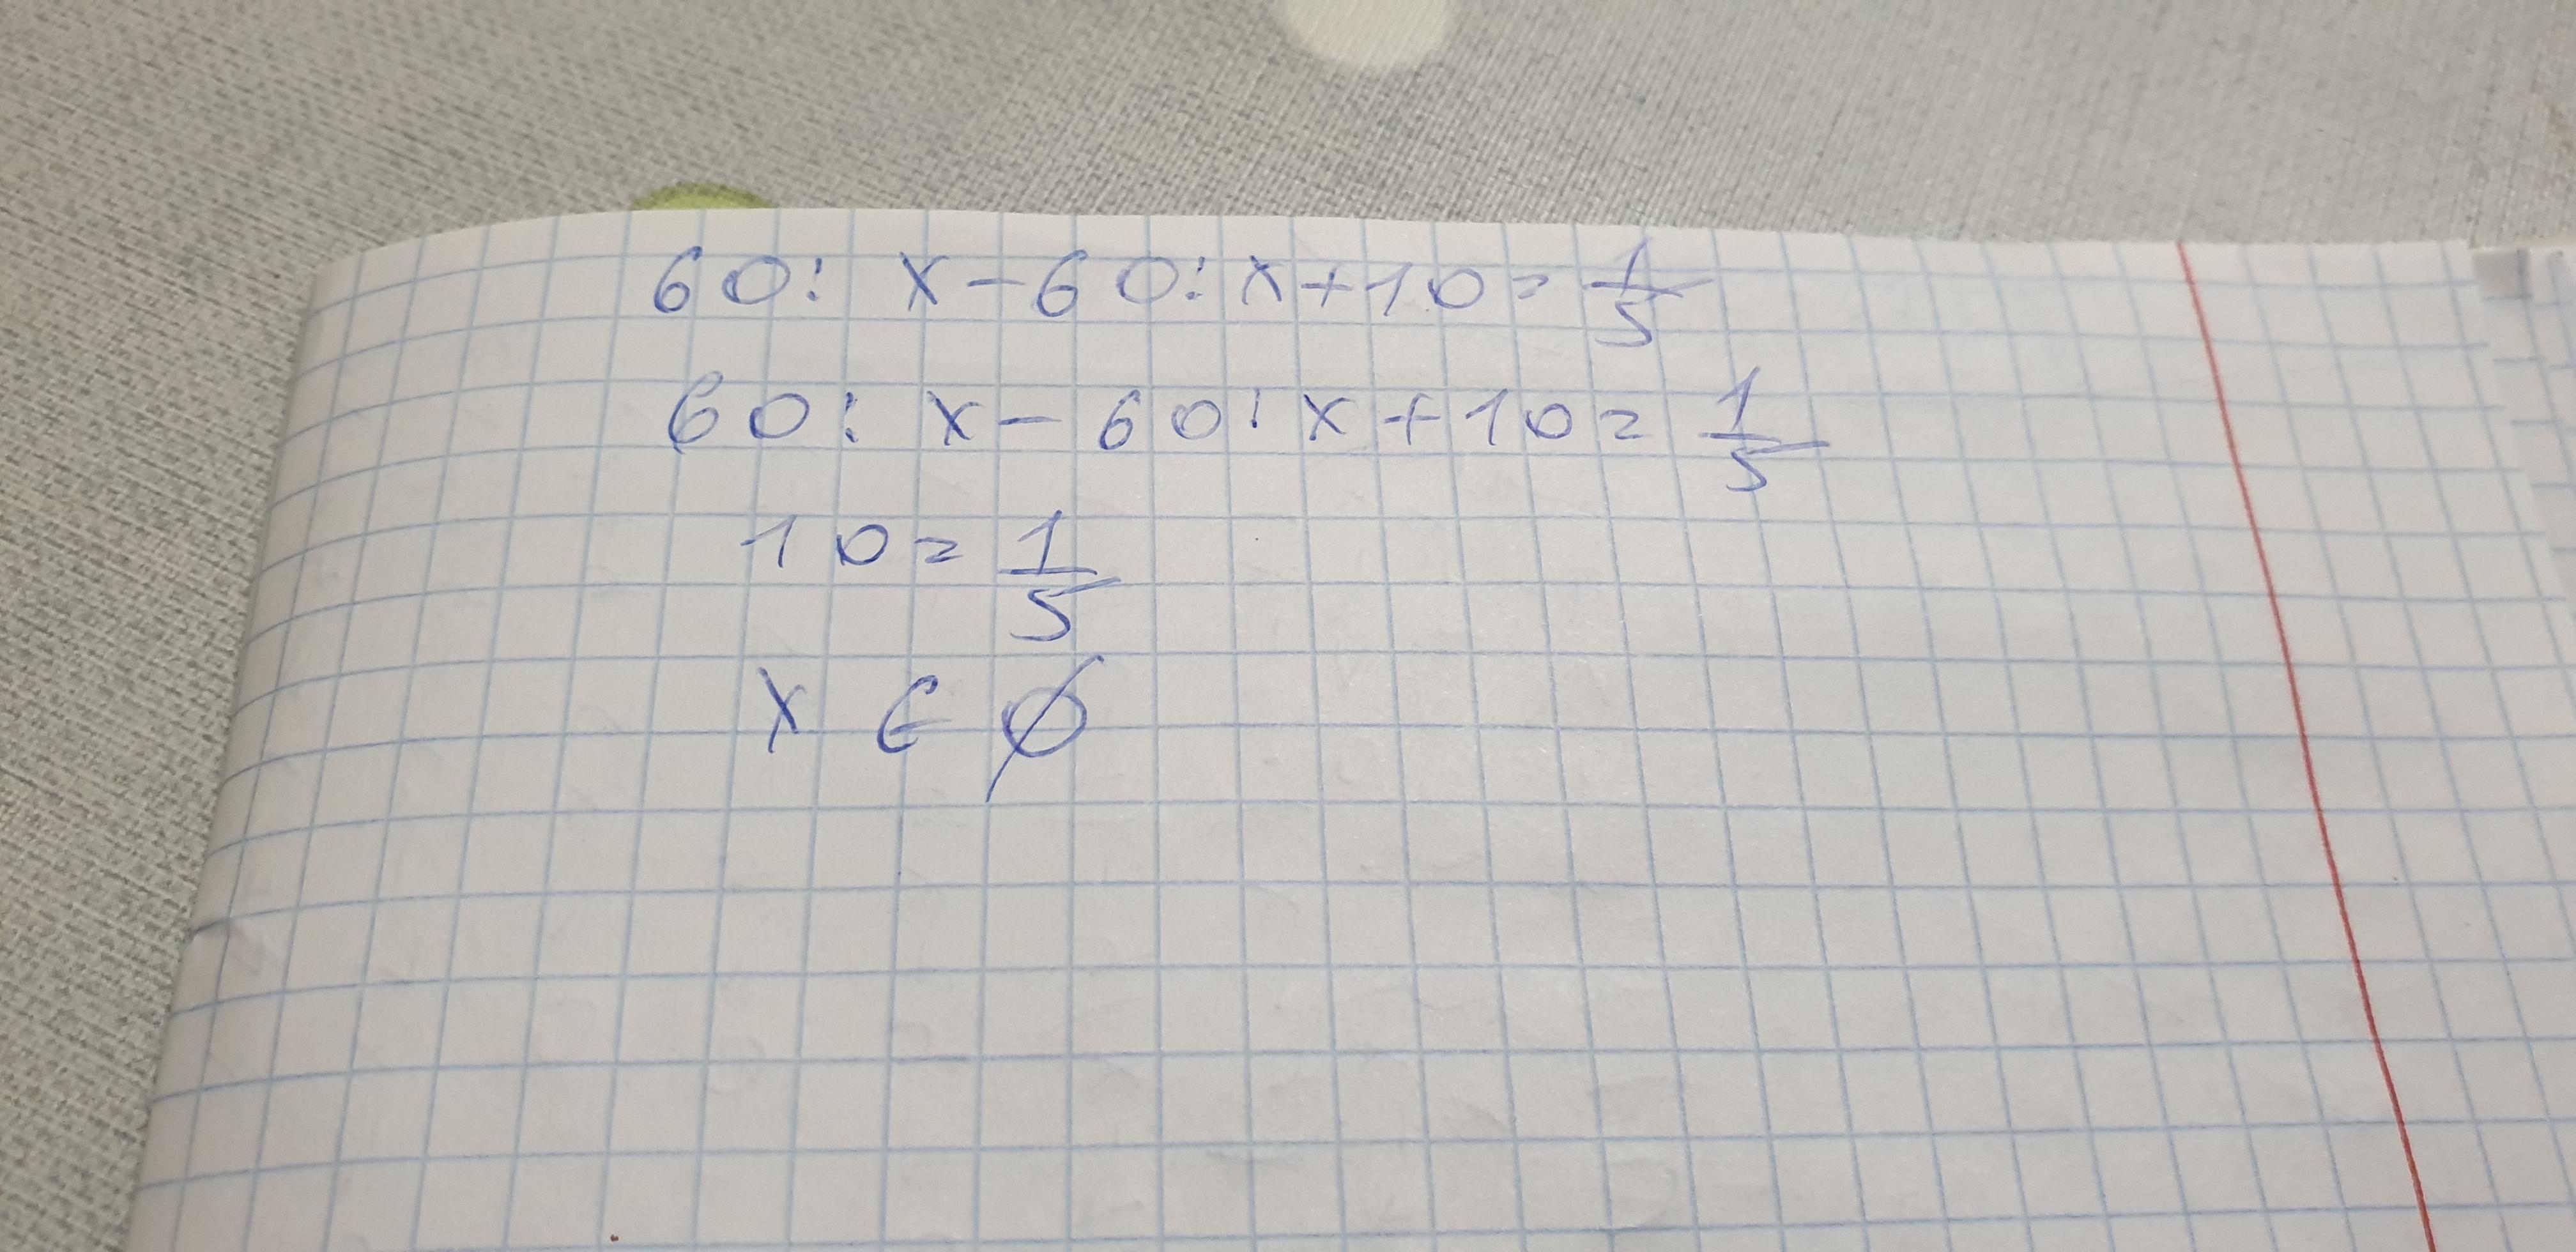 60: x-60: x+10= 1/5
60: x-60: x+10= 1/5
10= 1/5
x ∈ ∅